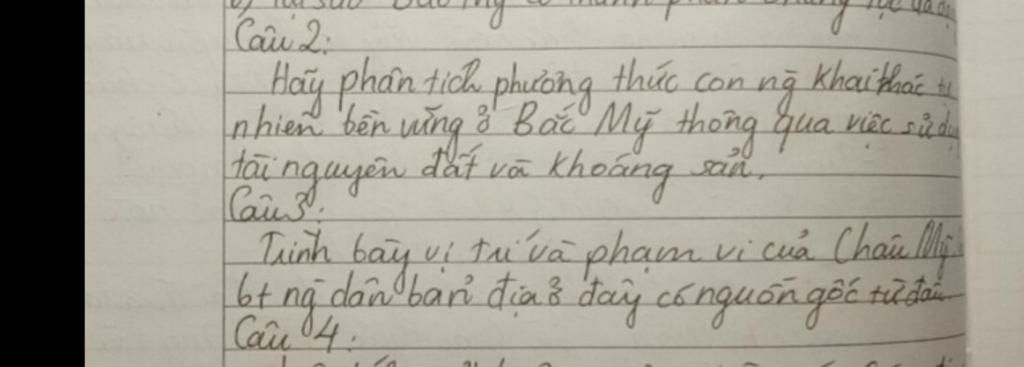 Câu 2:
Hãy phân tích phương thức con ng̃ khai thác tự
nhiên bền vững ở Bắc Mỹ thông qua việc sử dụ
tài nguyên đất và khoáng sản.
Câu 3:
Trình bày vị trí và phạm vi của Châu Mỹ.
bt ng̃ dân bản địa ở đây có nguồn gốc từ đâu
Câu 4: